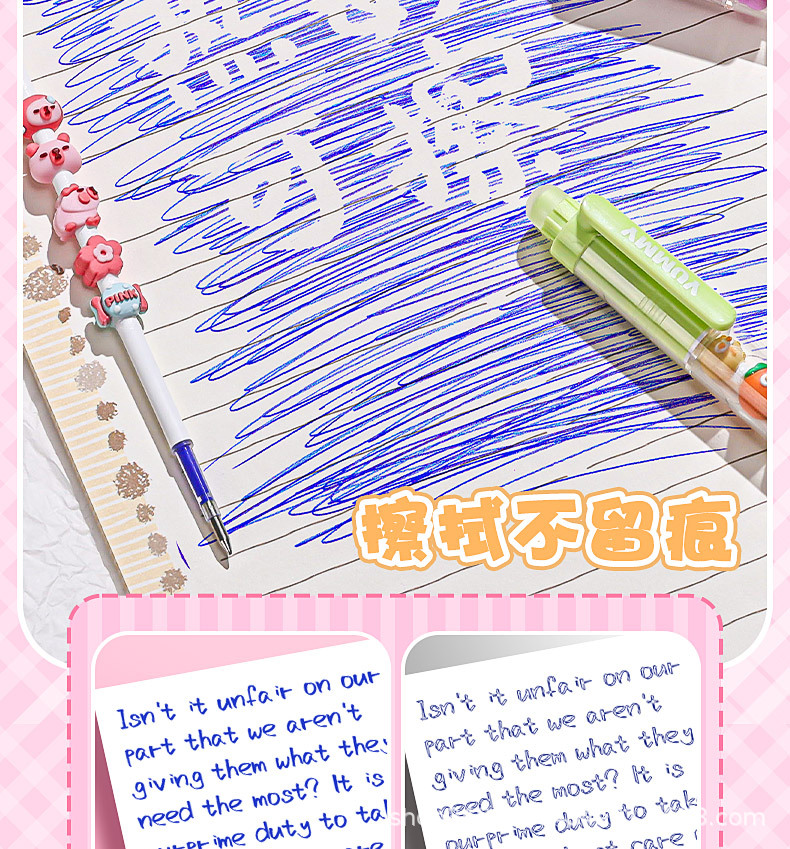 可擦
YUMMY
PINK
擦拭不留痕
Isn't it unfair on our
part that we aren't
giving them what they
need the most? It is
ourprime duty to tal
Isn't it unfair on our
part that we aren't
giving them what they
need the most? It is
ourprime duty to tak